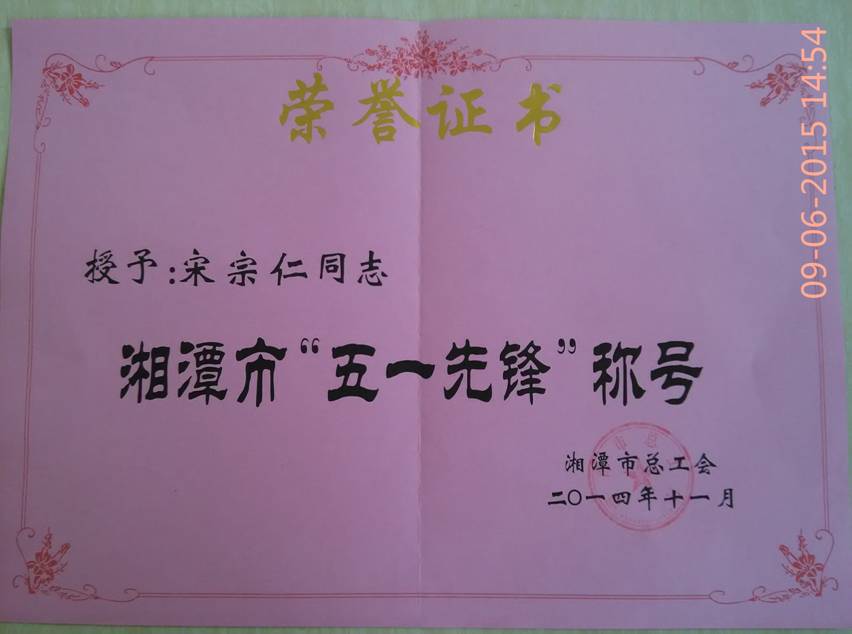 荣誉证书
授予:宋宗仁同志
湘潭市“五一先锋”称号
湘潭市总工会
二〇一四年十一月
09-06-2015 14:54